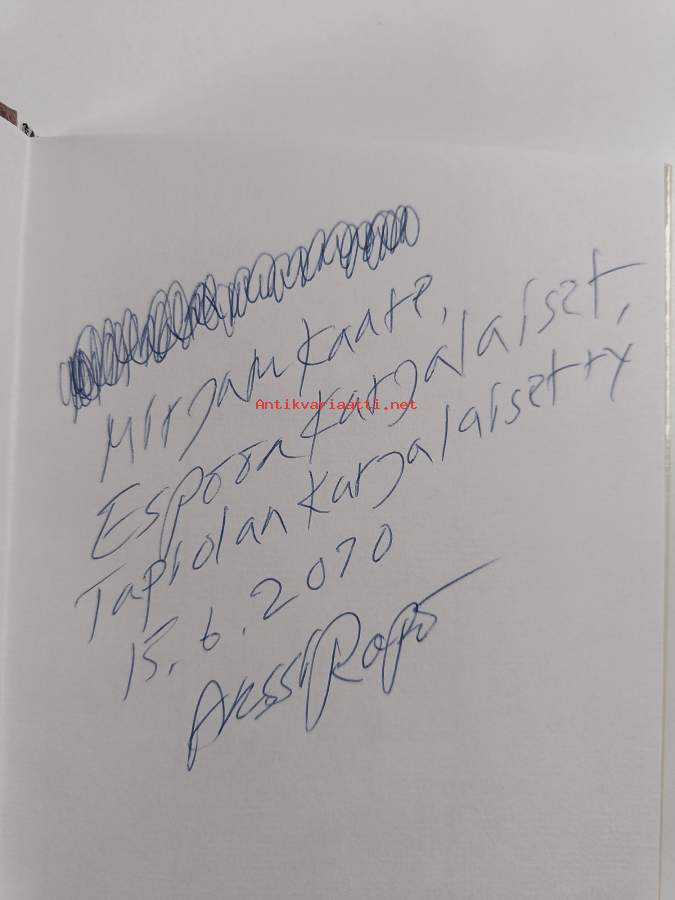 Mirjam Kaate,
Espoon Karjalaiset,
Tapiolan Karjalaiset ry
15.6.2010
Anssi Ropo
Antikvariaatti.net